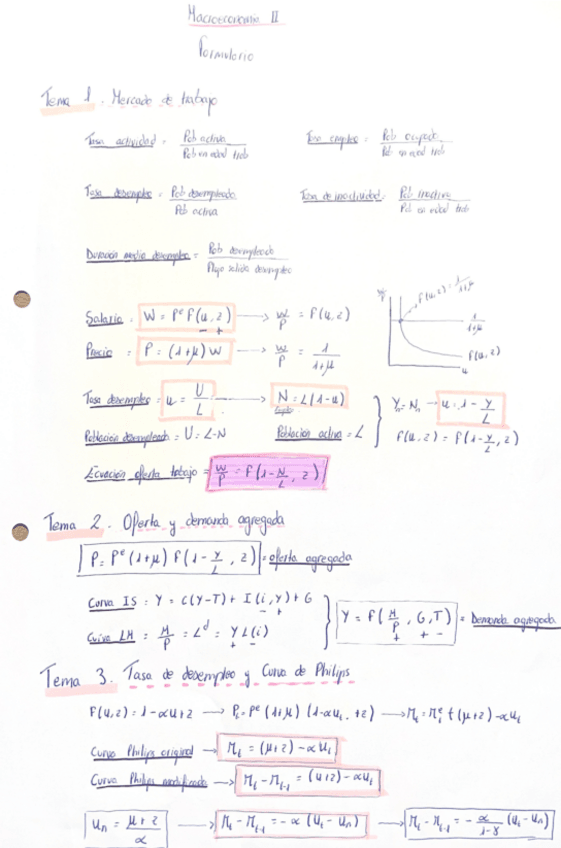 Macroeconomía II
Formulario
Tema 1. Mercado de trabajo
Tasa actividad = Pob activa / Pob en edad trab
Tasa empleo = Pob ocupada / Pob en edad trab
Tasa desempleo = Pob desempleada / Pob activa
Tasa de inactividad = Pob inactiva / Pob en edad trab
Duración media desempleo = Pob desempleada / Flujo salida desempleo
Salario = W = Pᵉ F(u, z) → W/P = F(u, z)
- +
Precio = P = (1+μ) W → W/P = 1/(1+μ)
W/P
F(u, z) = 1/(1+μ)
1/(1+μ)
F(u, z)
u
Tasa desempleo = u = U/L → N = L(1-u)
Yn = Nn → u = 1 - Y/L
Población desempleada = U = L-N
Población activa = L
F(u, z) = F(1 - Y/L, z)
Ecuación oferta trabajo = W/P = F(1 - N/L, z)
Tema 2. Oferta y demanda agregada
P = Pᵉ (1+μ) F(1 - Y/L, z) = oferta agregada
Curva IS = Y = C(Y-T) + I(i, Y) + G
- +
Curva LM = M/P = Lᵈ = Y L(i)
-
Y = F(M/P, G, T) = Demanda agregada
+ + -
Tema 3. Tasa de desempleo y Curva de Philips
F(u, z) = 1 - αu + z → Pₜ = Pᵉ (1+μ) (1 - αuₜ + z) → πₜ = πₜᵉ + (μ+z) - αuₜ
Curva Philips original → πₜ = (μ+z) - αuₜ
Curva Philips modificada → πₜ - πₜ₋₁ = (μ+z) - αuₜ
uₙ = (μ+z)/α → πₜ - πₜ₋₁ = -α (uₜ - uₙ) → πₜ - πₜ₋₁ = - α/(1-γ) (uₜ - uₙ)